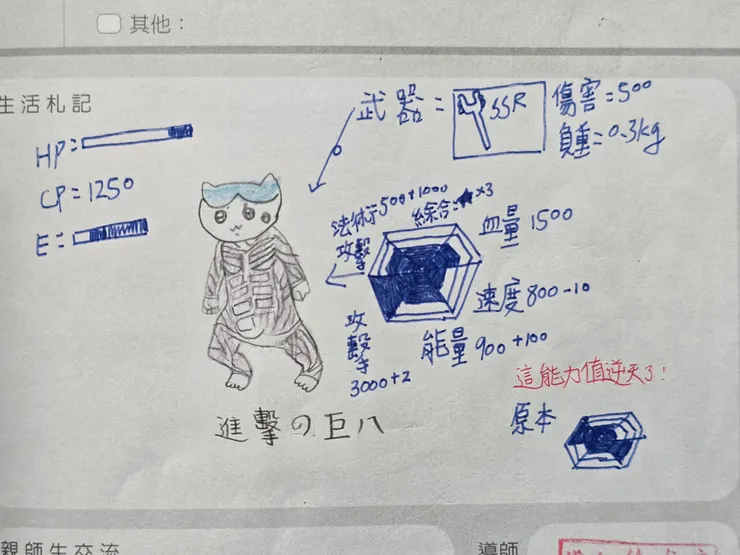 其他：
生活札記
HP=
CP=1250
E=
武器=
SSR
傷害=500
負重=0.3kg
法術攻擊 500+1000
綜合=★×3
血量 1500
速度 800-10
能量 900+100
攻擊手 3000+2
這能力值逆天了！
原本
進撃の巨八
親師生交流
導師